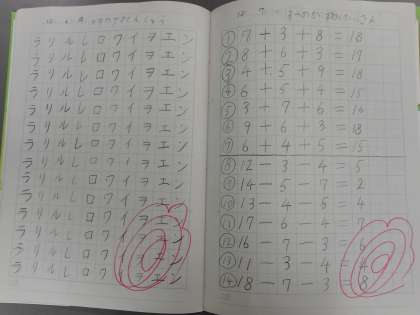 ラリルレロワイヲエン
ラリルレロワイヲエン
ラリルレロワイヲエン
ラリルレロワイヲエン
ラリルレロワイヲエン
ラリルレロワイヲエン
ラリルレロワイヲエン
ラリルレロワイヲエン
ラリルレロワイヲエン
ラリルレロワイヲエン
ラリルレロワイヲエン
ラリルレロワイヲエン
ラリルレロワイヲエン
ラリルレロワイヲエン
① 7+3+8=18
② 8+6+3=17
③ 4+5+9=18
④ 6+5+4=15
⑤ 3+7+6=16
⑥ 9+6+3=18
⑦ 6+4+5=15
⑧ 12-3-4=5
⑨ 14-5-7=2
⑩ 13-4-5=4
⑪ 17-6-4=7
⑫ 16-7-3=6
⑬ 11-3-4=4
⑭ 18-7-3=8